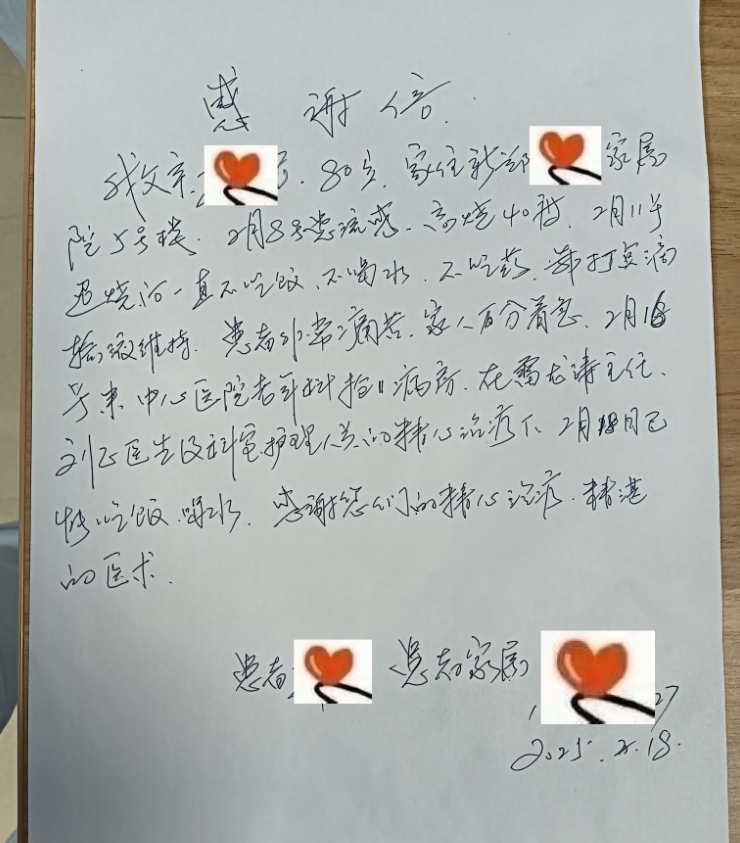 感谢信
我父亲 80岁,家住新郑 家属
院5号楼.2月8号患流感、高烧40度,2月11号
退烧后一直不吃饭、不喝水、不吃药,靠打点滴
输液维持.患者非常痛苦,家人万分着急,2月16
号来中心医院老年科抢 病房,在雷龙涛主任、
刘 医生及科室护理人员的精心治疗下,2月18日已
能吃饭、喝水,感谢您们的精心治疗,精湛
的医术.
患者 患者家属
27
2025.2.18.